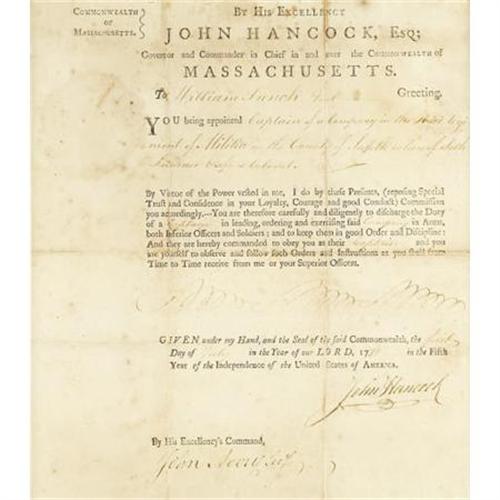 COMMONWEALTH
OF
MASSACHUSETTS.
BY HIS EXCELLENCY
JOHN HANCOCK, ESQ;
Governor and Commander in Chief in and over the COMMONWEALTH of
MASSACHUSETTS.
To William Greeting.
YOU being appointed Captain of a Company in the
of Militia in the County of Suffolk in
By Virtue of the Power vested in me, I do by these Presents, (reposing Special
Trust and Confidence in your Loyalty, Courage and good Conduct) Commission
you accordingly.---You are therefore carefully and diligently to discharge the Duty
of a Captain in leading, ordering and exercising said Company in Arms,
both Inferior Officers and Soldiers; and to keep them in good Order and Discipline:
And they are hereby commanded to obey you as their Captain and you
are yourself to observe and follow such Orders and Instructions as you shall from
Time to Time receive from me or your Superior Officers.
GIVEN under my Hand, and the Seal of the said Commonwealth, the
Day of in the Year of our LORD, 17 in the Fifth
Year of the Independence of the United States of AMERICA.
John Hancock
By His Excellency's Command,
John Avery